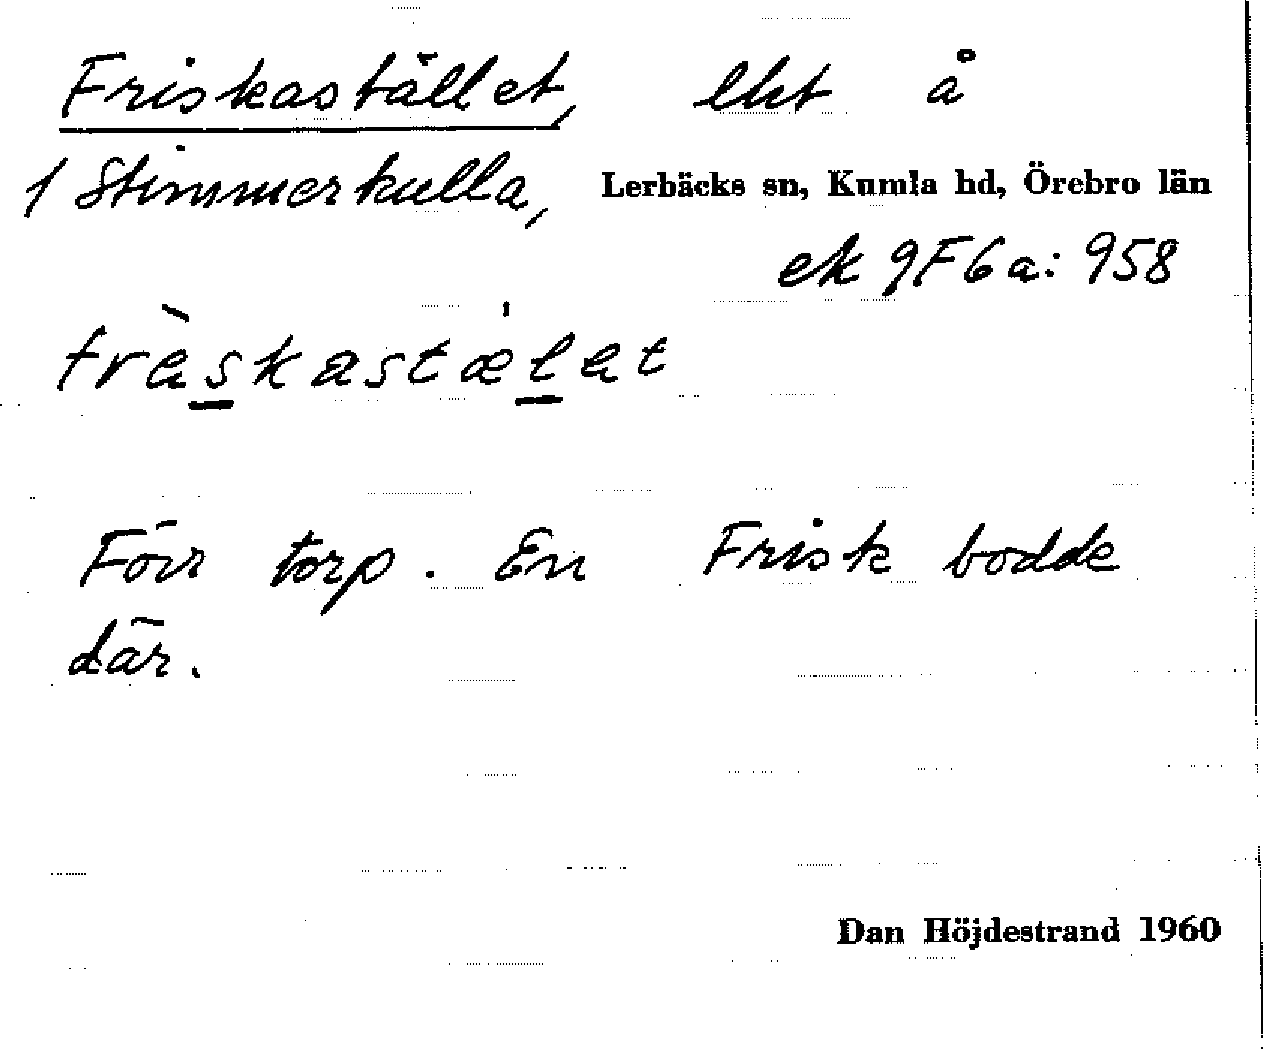 Friskastället, lht å
1 Stimmerkulla, Lerbäcks sn, Kumla hd, Örebro län
ek 9F6a: 958
frèskastæ̍let
Förr torp. En Frisk bodde
där.
Dan Höjdestrand 1960